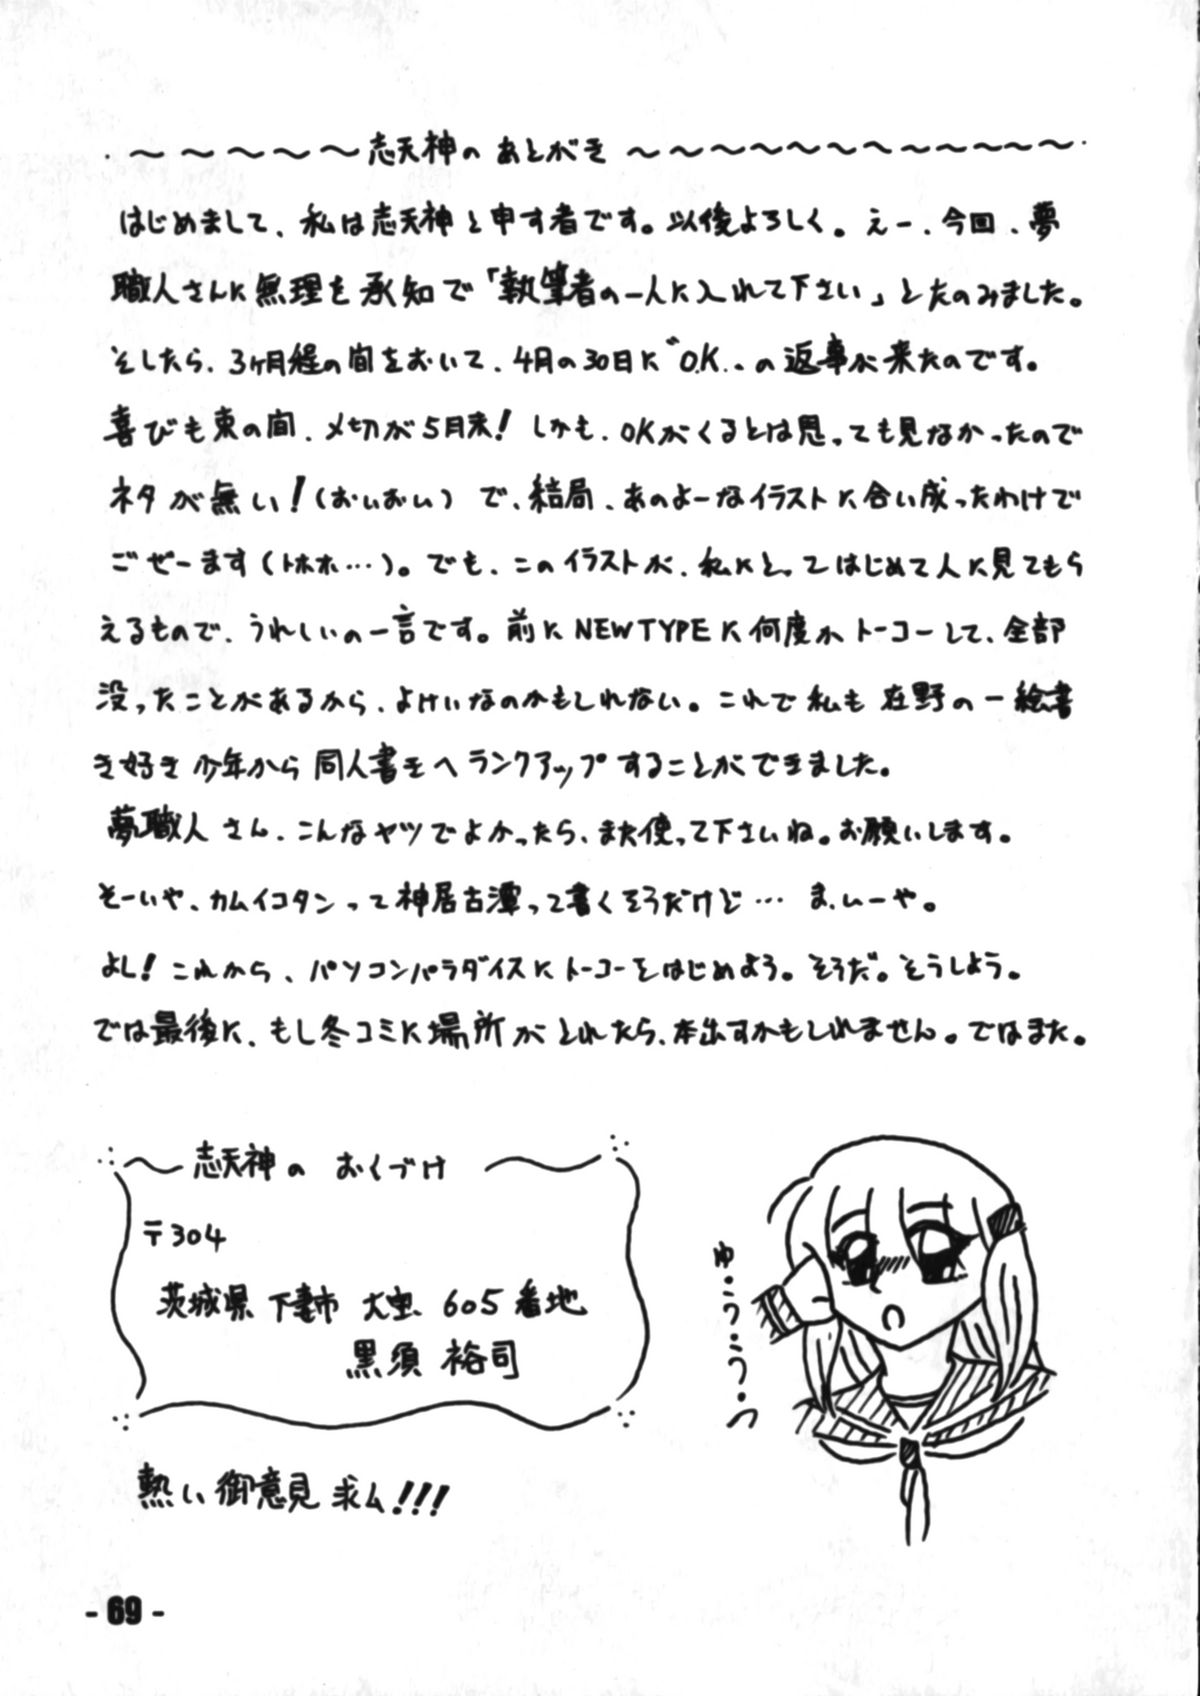 志天神の あとがき
はじめまして、私は志天神と申す者です。以後よろしく。えー、今回、夢
職人さんに無理を承知で「執筆者の一人に入れて下さい」とたのみました。
そしたら、3ヶ月程の間をおいて、4月の30日に"O.K.."の返事が来たのです。
喜びも束の間、〆切が5月末!しかも、OKがくるとは思っても見なかったので
ネタが無い!(おいおい)で、結局、あのよーなイラストに合い成ったわけで
ごぜーます(トホホ…)。でも、このイラストが、私にとってはじめて人に見てもら
えるもので、うれしいの一言です。前にNEWTYPEに何度かトーコーして、全部
没ったことがあるから、よけいなのかもしれない。これで私も在野の一絵書
き好き少年から同人書きへランクアップすることができました。
夢職人さん、こんなヤツでよかったら、また使って下さいね。お願いします。
そーいや、カムイコタンって神居古潭って書くそうだけど… ま、いーや。
よし!これから、パソコンパラダイスにトーコーをはじめよう。そうだ。そうしよう。
では最後に、もし冬コミに場所がとれたら、本出すかもしれません。ではまた。
志天神の おくづけ
〒304
茨城県 下妻市 大宝 605番地
黒須 裕司
熱い御意見求ム!!!
ゆ・う・う・つ
- 69 -